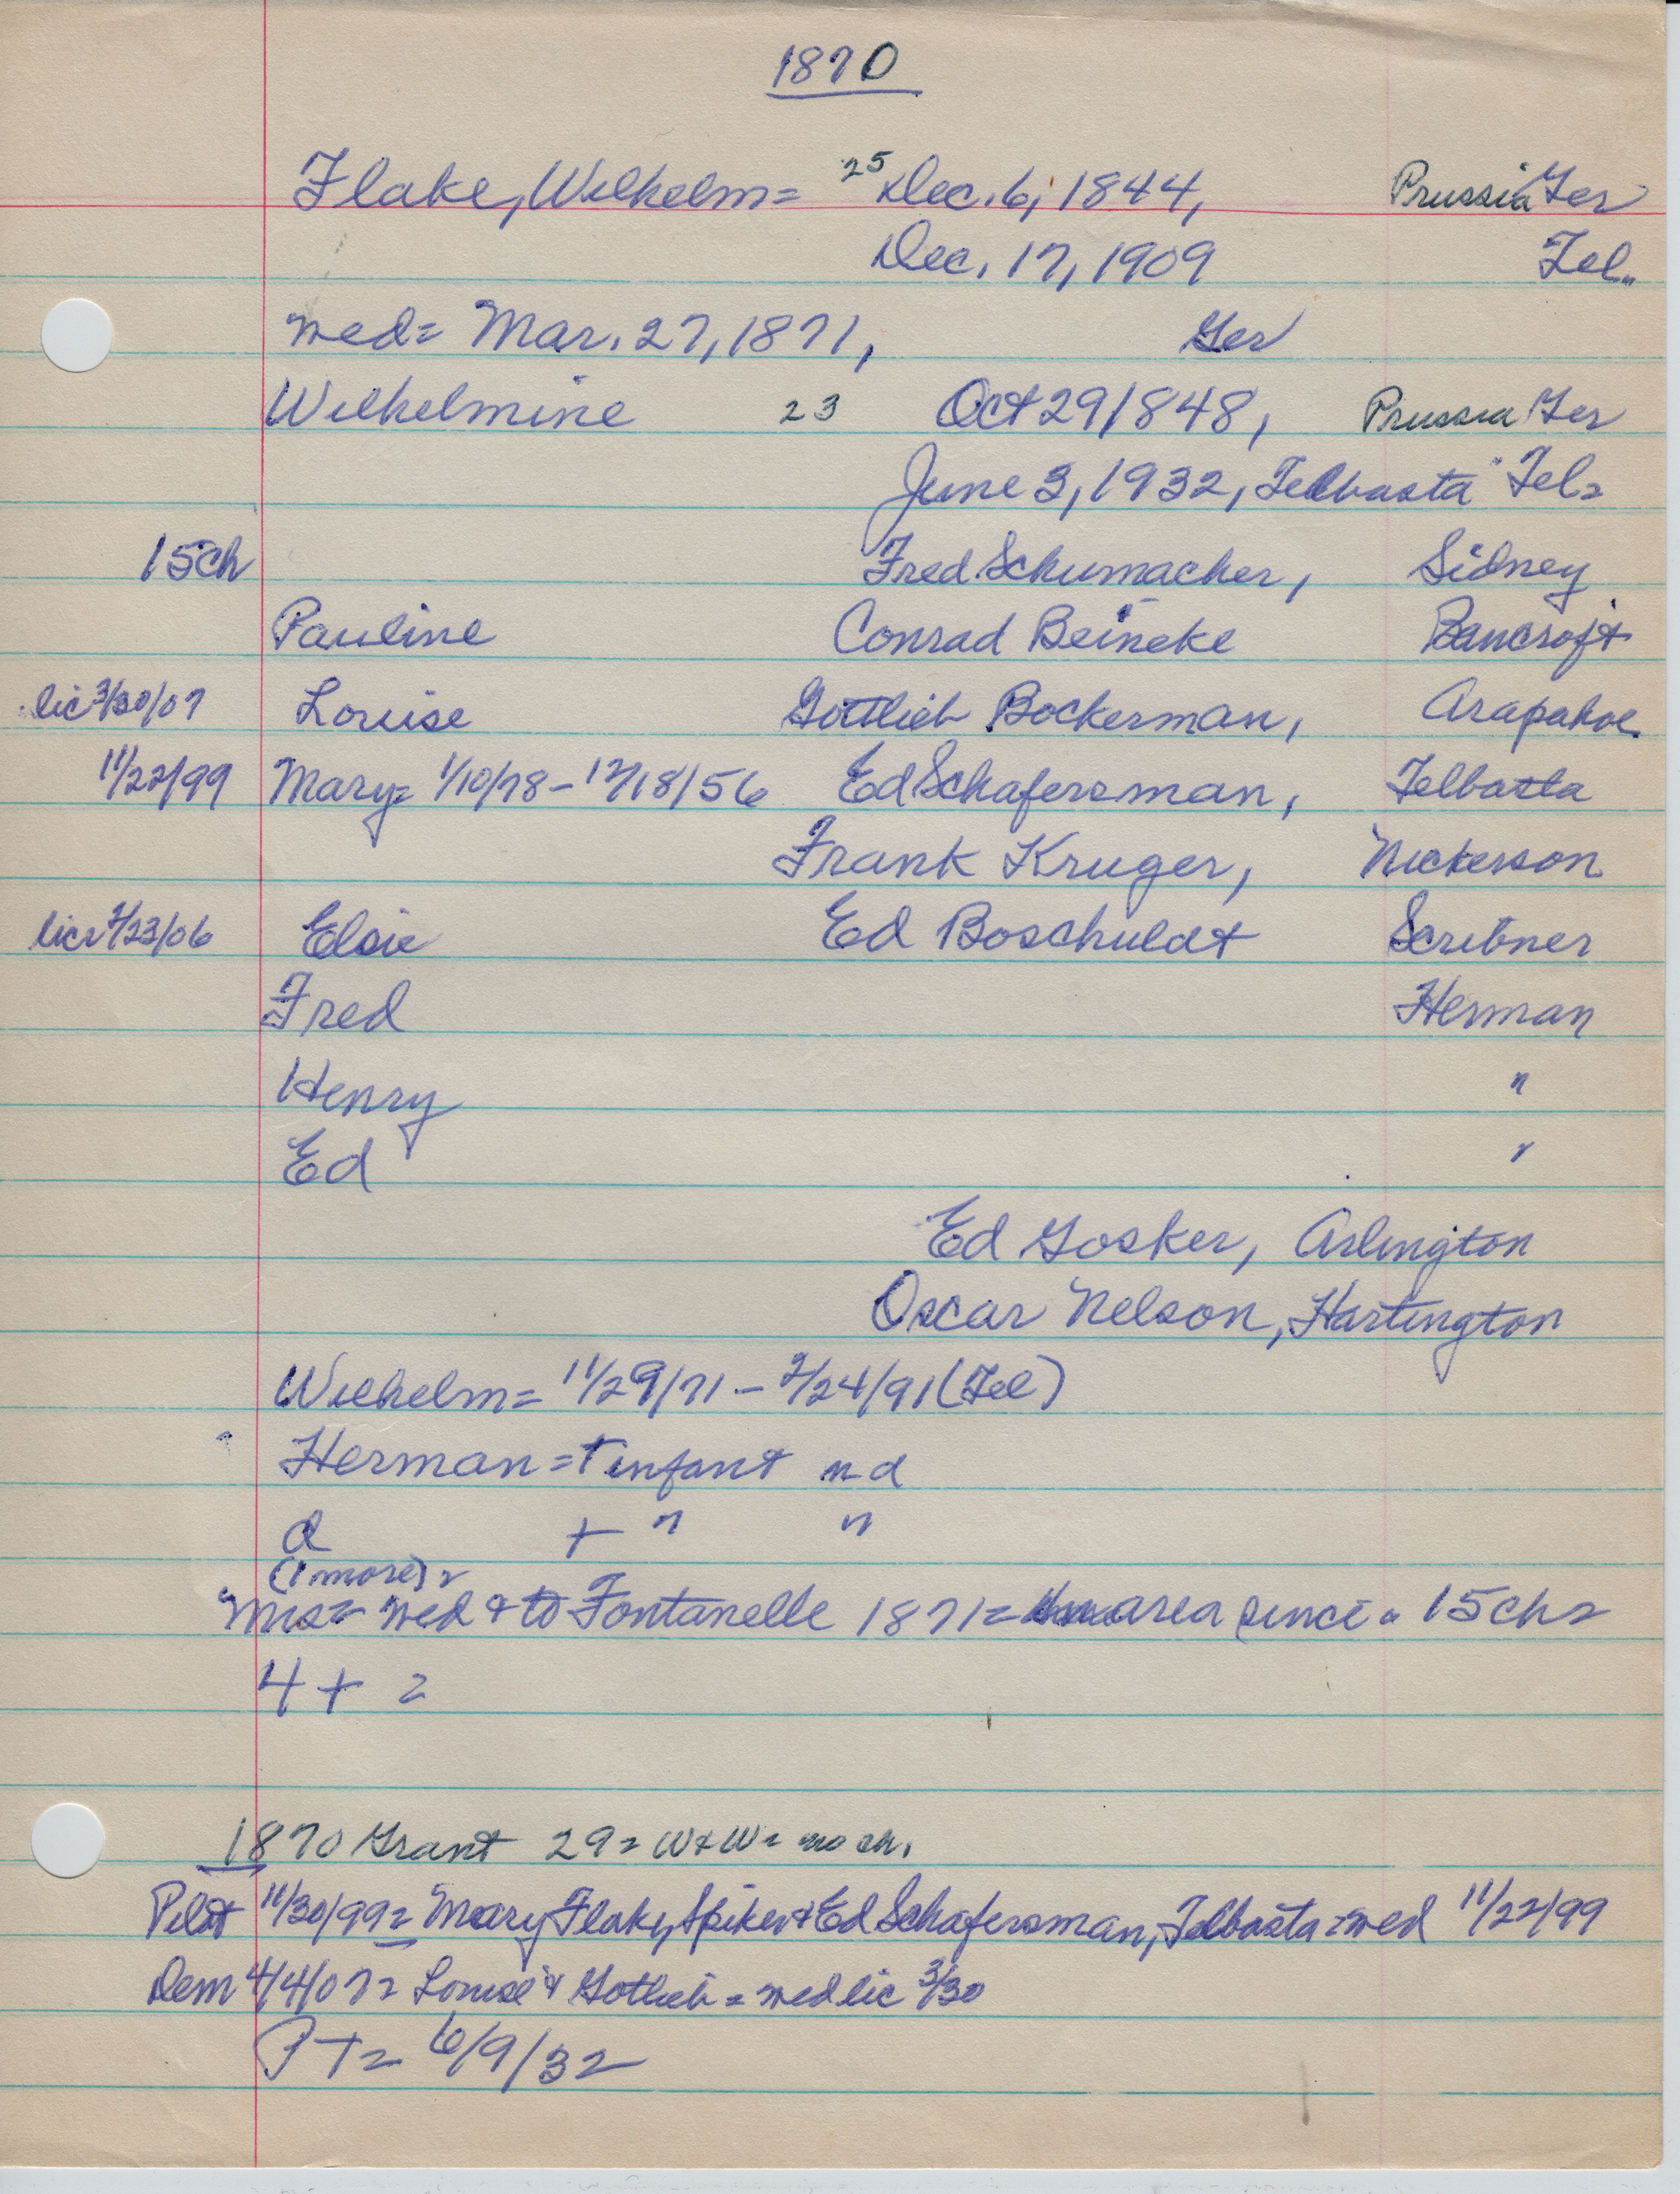 1870
Flake, Wilhelm= 25 Dec. 6, 1844, Prussia Ger
Dec. 17, 1909 Tel.
wed= Mar. 27, 1871, Ger
Wilhelmine 23 Oct 29 1848, Prussia Ger
June 3, 1932, Telbasta Tel=
15ch Fred Schumacher, Sidney
Pauline Conrad Beineke Bancroft
lic 3/30/07 Louise Gottlieb Bockerman, Arapahoe
11/22/99 Mary= 1/10/78 - 12/18/56 Ed Schafersman, Telbasta
Frank Kruger, Nickerson
lic= 2/23/06 Elsie Ed Boschuldt Scribner
Fred Herman
Henry "
Ed "
Ed Gosker, Arlington
Oscar Nelson, Hartington
Wilhelm= 11/29/71 - 2/24/91 (Tel)
Herman = + infant nd
d + " "
(1 more) =
Mrs= wed & to Fontanelle 1871= area since = 15ch=
4 + =
1870 Grant 29= W & W= no ch.
Pilot 11/30/99= Mary Flake, Spiker & Ed Schafersman, Telbasta = wed 11/22/99
Dem 4/4/07= Louise & Gotlieb = wed lic 3/30
PT= 6/9/32